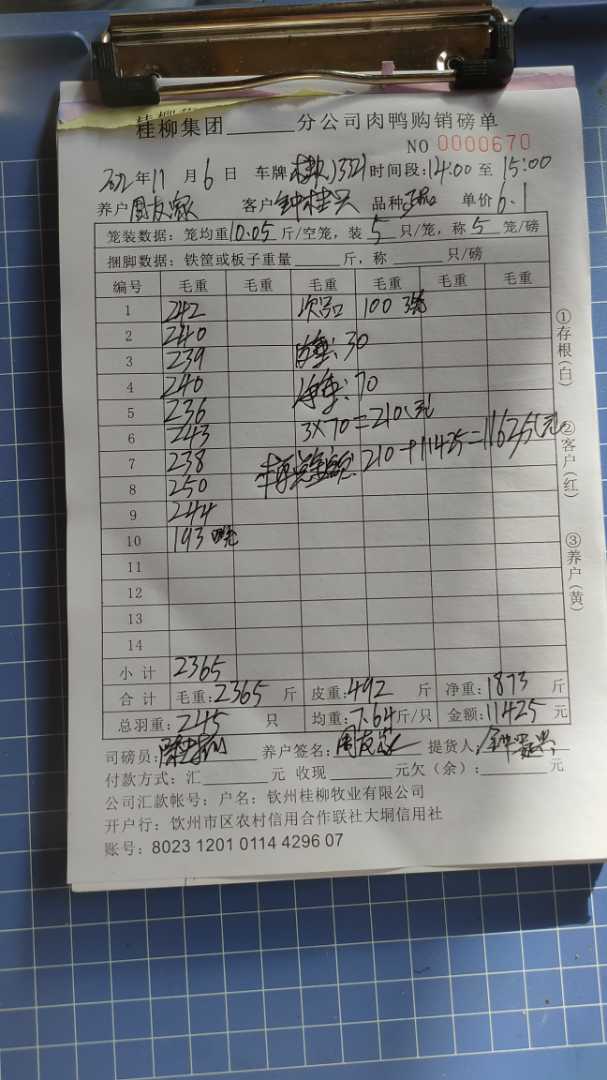 桂柳集团______分公司肉鸭购销磅单
NO 0000670
2022年11月6日 车牌 1321 时间段:14:00至15:00
养户 周友家 客户 钟桂兴 品种 单价6.1
笼装数据:笼均重10.05斤/空笼,装5只/笼,称5笼/磅
捆脚数据:铁筐或板子重量______斤,称______只/磅
编号 毛重 毛重 毛重 毛重 毛重 毛重
1 242 次品 100
2 240
3 239 皮重:30
4 240 净重:70
5 236
6 243 3×70=210(元)
7 238 总金额:210+11425=11625(元)
8 250
9 244
10 193
11
12
13
14
小计 2365
合计 毛重:2365斤 皮重:492斤 净重:1873斤
总羽重:245只 均重:7.64斤/只 金额:11425元
司磅员: 养户签名:周友家 提货人:
付款方式:汇______元 收现______元欠(余):______元
公司汇款帐号:户名:钦州桂柳牧业有限公司
开户行:钦州市区农村信用合作联社大垌信用社
账号:8023 1201 0114 4296 07
①存根(白)
②客户(红)
③养户(黄)